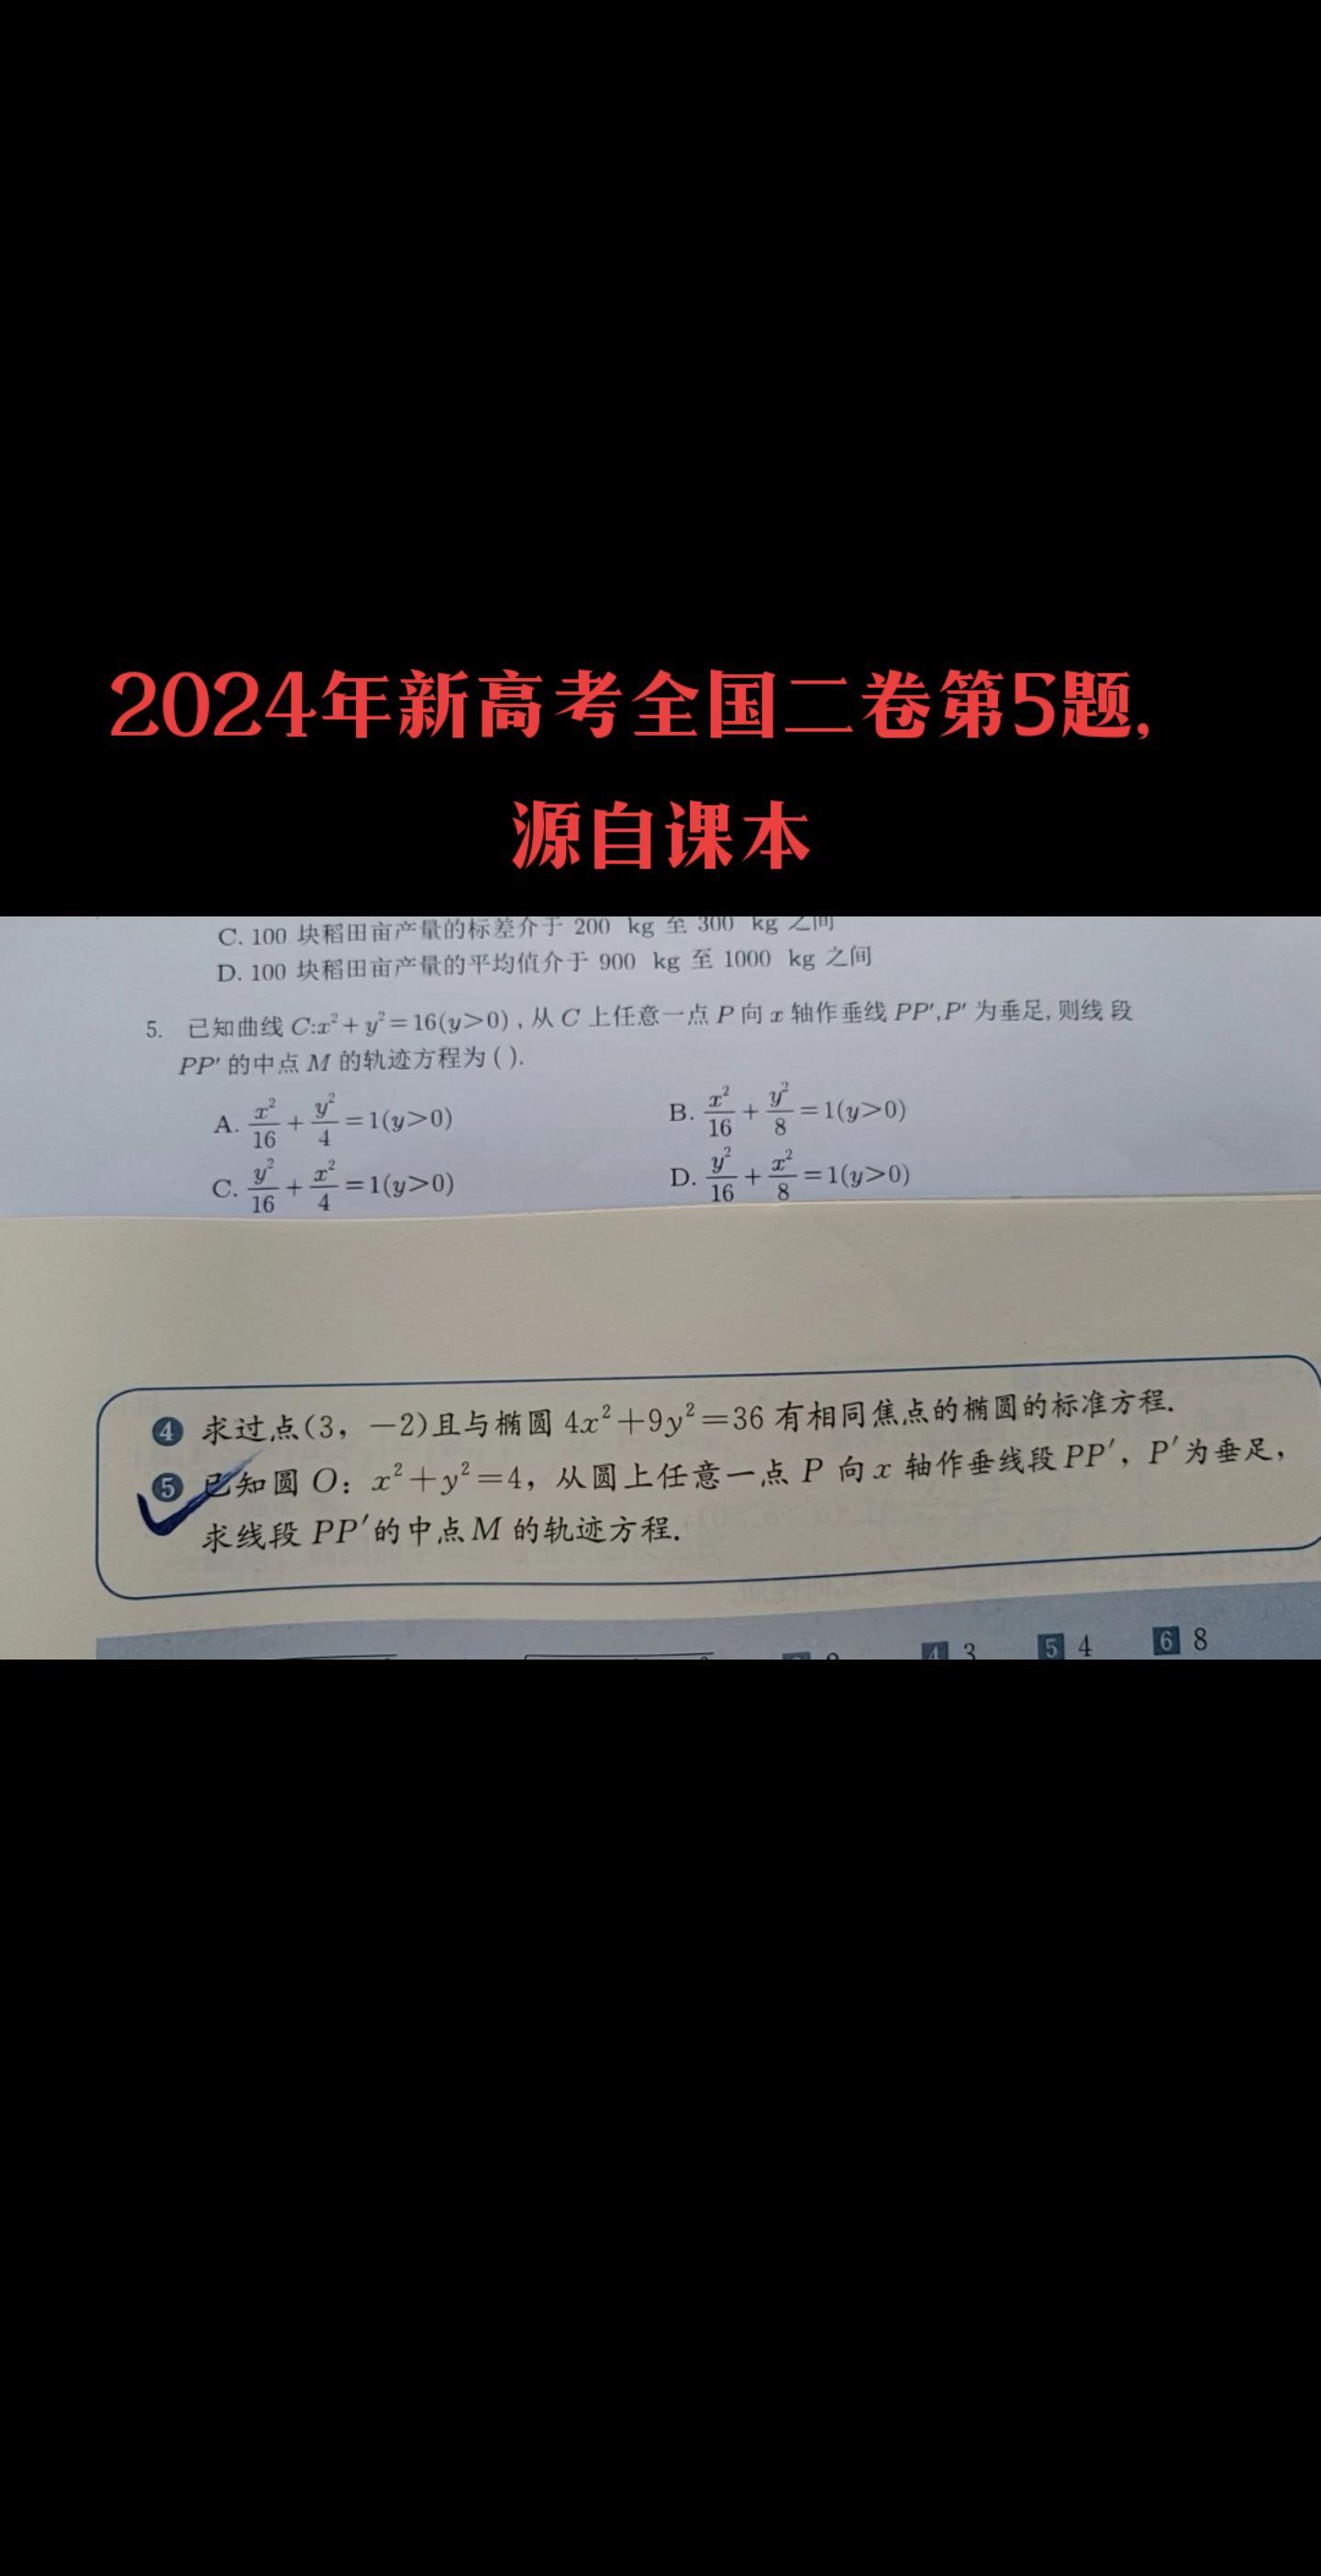 2024年新高考全国二卷第5题,
源自课本
C. 100 块稻田亩产量的标差介于 200 kg 至 300 kg 之间
D. 100 块稻田亩产量的平均值介于 900 kg 至 1000 kg 之间
5. 已知曲线 C:x²+y²=16(y>0), 从 C 上任意一点 P 向 x 轴作垂线 PP′,P′ 为垂足, 则线 段
PP′ 的中点 M 的轨迹方程为 ( ).
A. x²/16 + y²/4 = 1(y>0) B. x²/16 + y²/8 = 1(y>0)
C. y²/16 + x²/4 = 1(y>0) D. y²/16 + x²/8 = 1(y>0)
❹ 求过点(3, −2)且与椭圆 4x²+9y²=36 有相同焦点的椭圆的标准方程.
❺ 已知圆 O: x²+y²=4, 从圆上任意一点 P 向 x 轴作垂线段 PP′, P′为垂足,
求线段 PP′的中点 M 的轨迹方程.
4 3 5 4 6 8